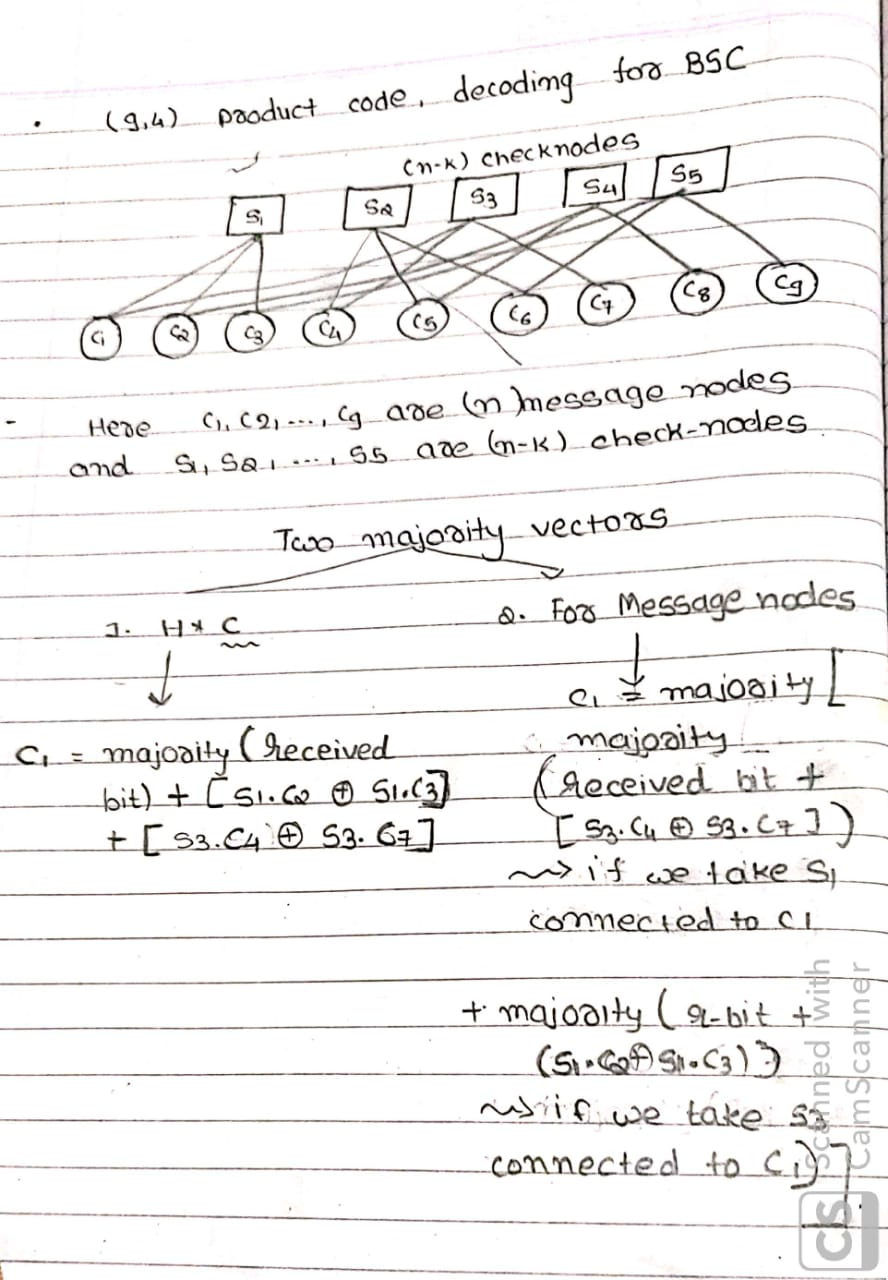 • (9,4) product code, decoding for BSC
(n-k) checknodes
S1 S2 S3 S4 S5
C1 C2 C3 C4 C5 C6 C7 C8 C9
- Here C1, C2, ..., C9 are (n) message nodes
and S1, S2, ..., S5 are (n-k) check-nodes
Two majority vectors
1. H * C
2. For Message nodes
C1 = majority (received
bit) + [S1.C2 ⊕ S1.C3]
+ [S3.C4 ⊕ S3.C7]
C1 = majority [
majority
(received bit +
[S3.C4 ⊕ S3.C7])
~~> if we take S1
connected to C1
+ majority (r-bit +
(S1.C2 ⊕ S1.C3))
~~> if we take S3
connected to C1)]
Scanned with
CamScanner
CS